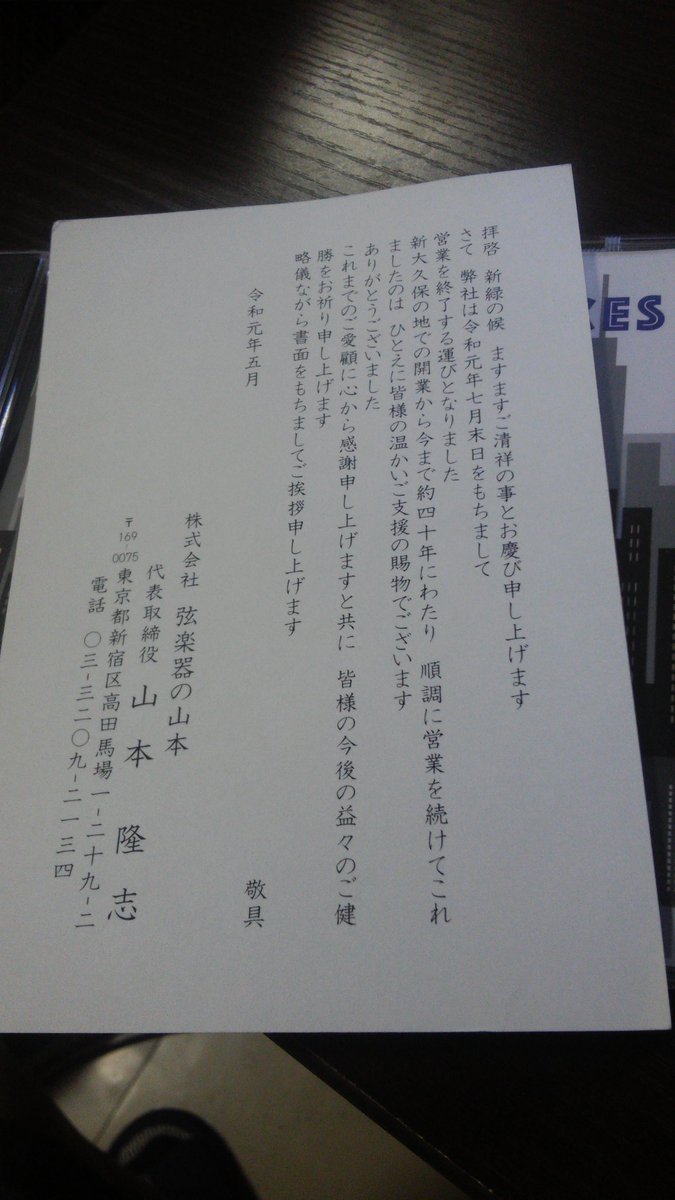 拝啓　新緑の候　ますますご清祥の事とお慶び申し上げます
さて　弊社は令和元年七月末日をもちまして
営業を終了する運びとなりました
新大久保の地での開業から今まで約四十年にわたり　順調に営業を続けてこれ
ましたのは　ひとえに皆様の温かいご支援の賜物でございます
ありがとうございました
これまでのご愛顧に心から感謝申し上げますと共に　皆様の今後の益々のご健
勝をお祈り申し上げます
略儀ながら書面をもちましてご挨拶申し上げます
敬具
令和元年五月
株式会社　弦楽器の山本
代表取締役　山本　隆志
〒169-0075東京都新宿区高田馬場一-二十九-二
電話　〇三-三二〇九-二一三四